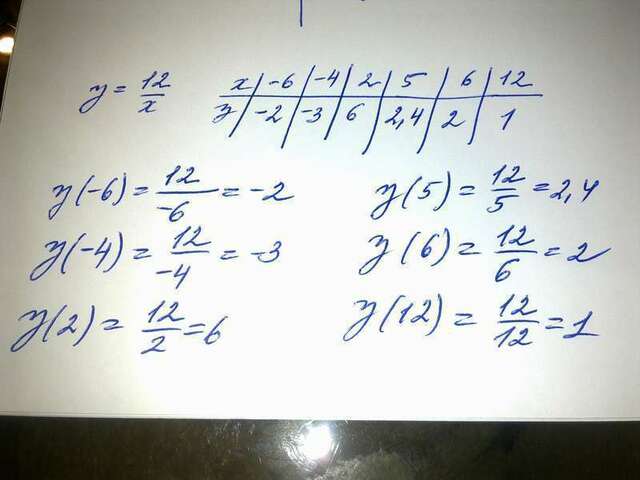 y = 12/x
x | -6 | -4 | 2 | 5 | 6 | 12
y | -2 | -3 | 6 | 2,4 | 2 | 1
y(-6) = 12/-6 = -2
y(-4) = 12/-4 = -3
y(2) = 12/2 = 6
y(5) = 12/5 = 2,4
y(6) = 12/6 = 2
y(12) = 12/12 = 1